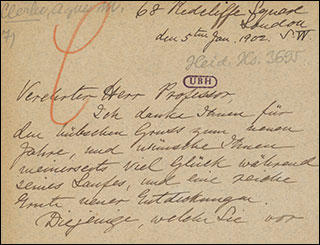 Clerke, Agnes M.
68 Redcliffe Square
London
den 5ten Jan. 1902. S.W.
Heid. Hs. 3695
UBH
Verehrter Herr Professor,
Ich danke Ihnen für
den hübschen Gruss zum neuen
Jahre, und wünsche Ihnen
meinerseits viel Glück während
seines Laufes, und eine reiche
Ernte neuer Entdeckungen.
Diejenige welche Sie vor